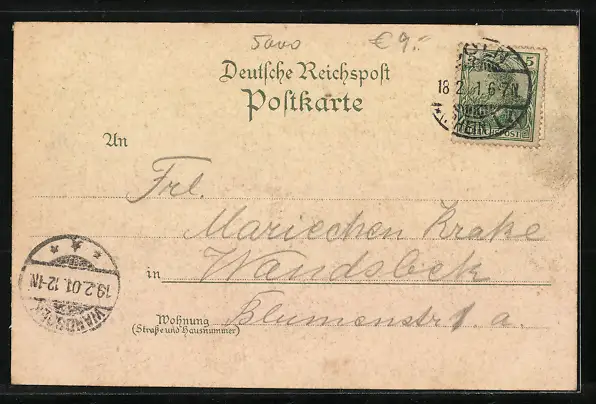 5000 € 9.-
Deutsche Reichspost
Postkarte
5
CÖLN
18 2. 01. 6-7N
REICHSPOST
An
Frl.
Mariechen Krake
in Wandsbeck
Wohnung Blumenstr 1. a.
(Straße und Hausnummer)
WANDSBECK
19.2.01. 12-1N